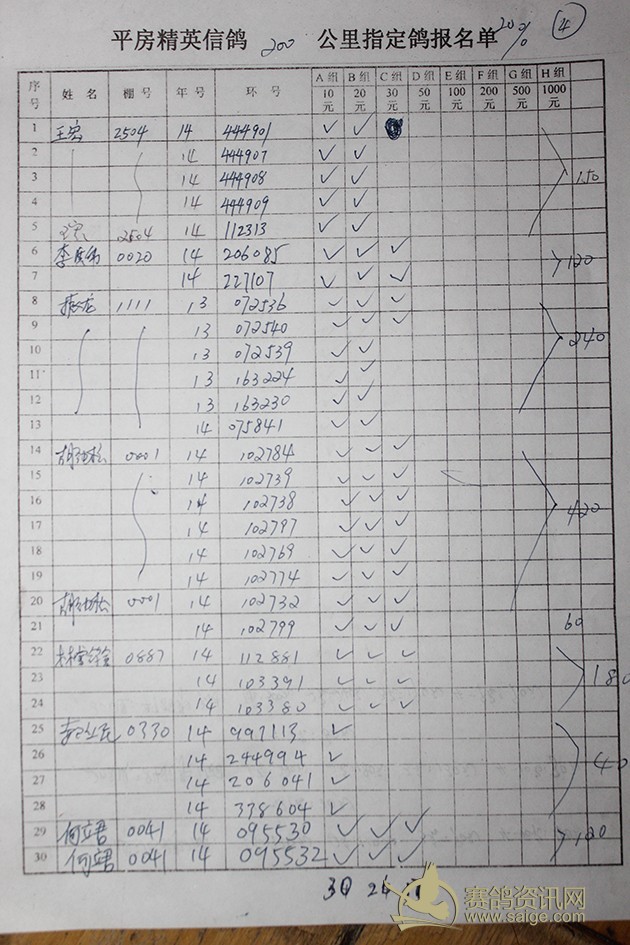 平房精英信鸽 200 公里指定鸽报名单 20% ④
序号 姓名 棚号 年号 环号 A组10元 B组20元 C组30元 D组50元 E组100元 F组200元 G组500元 H组1000元
1 王宏 2504 14 444901 ✓ ✓
2 14 444907 ✓ ✓
3 14 444908 ✓ ✓ 150
4 14 444909 ✓ ✓
5 2504 14 112313 ✓ ✓
6 0020 14 206085 ✓ ✓ ✓ 120
7 14 227107 ✓ ✓ ✓
8 1111 13 072536 ✓ ✓ ✓
9 13 072540 ✓ ✓ ✓ 240
10 13 072539 ✓ ✓
11 13 163224 ✓ ✓
12 13 163230 ✓ ✓
13 14 075841 ✓ ✓
14 0001 14 102784 ✓ ✓ ✓
15 14 102739 ✓ ✓ ✓
16 14 102738 ✓ ✓ ✓ 420
17 14 102797 ✓ ✓ ✓
18 14 102769 ✓ ✓ ✓
19 14 102774 ✓ ✓ ✓
20 0001 14 102732 ✓ ✓ ✓
21 14 102799 ✓ ✓ ✓ 60
22 0887 14 112881 ✓ ✓ ✓
23 14 103391 ✓ ✓ ✓ 180
24 14 103380 ✓ ✓ ✓
25 0330 14 997113 ✓
26 14 244994 ✓ 40
27 14 206041 ✓
28 14 378604 ✓
29 何立君 0041 14 095530 ✓ ✓ ✓ 120
30 何立君 0041 14 095532 ✓ ✓ ✓
30 26
赛鸽资讯网
www.saige.com